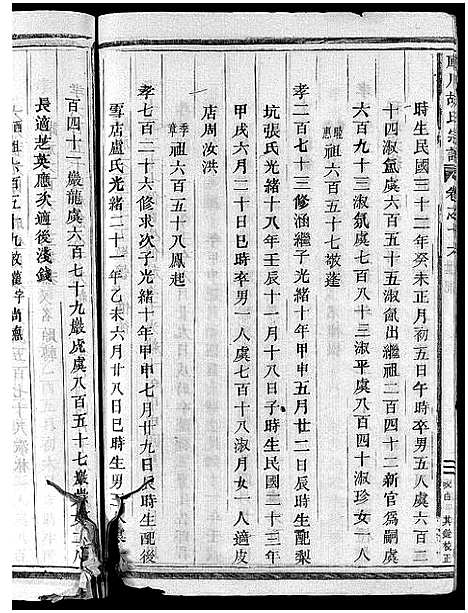 胡氏宗譜 卷之十六
時生民國三十二年癸未正月初五日午時卒男五人虞六百三
十四淑氤虞六百五十五淑劍出繼祖二百四十二新官為嗣虞
六百九十三淑氛虞七百八十三淑平虞八百四十淑珍女一人
嚴惠祖六百五十七敬蓬
孝二百九十七修涵繼子光緒十年甲申五月廿二日辰時生配梨
坑張氏光緒十八年壬辰十一月十八日子時生民國二十三年
甲戌六月二十日巳時卒男一人虞七百十八淑月女一人適皮
店周汝洪
季章祖六百五十八鳳起
孝七百二十六修求次子光緒十年甲申七月廿九日辰時生配後
雪店盧氏光緒二十一年乙未六月廿八日巳時生男三人虞
百四十二嚴龍虞六百七十九嚴虎虞八百五十七嚴
長適芝英應次適後淺錢
祖六百五十九敬